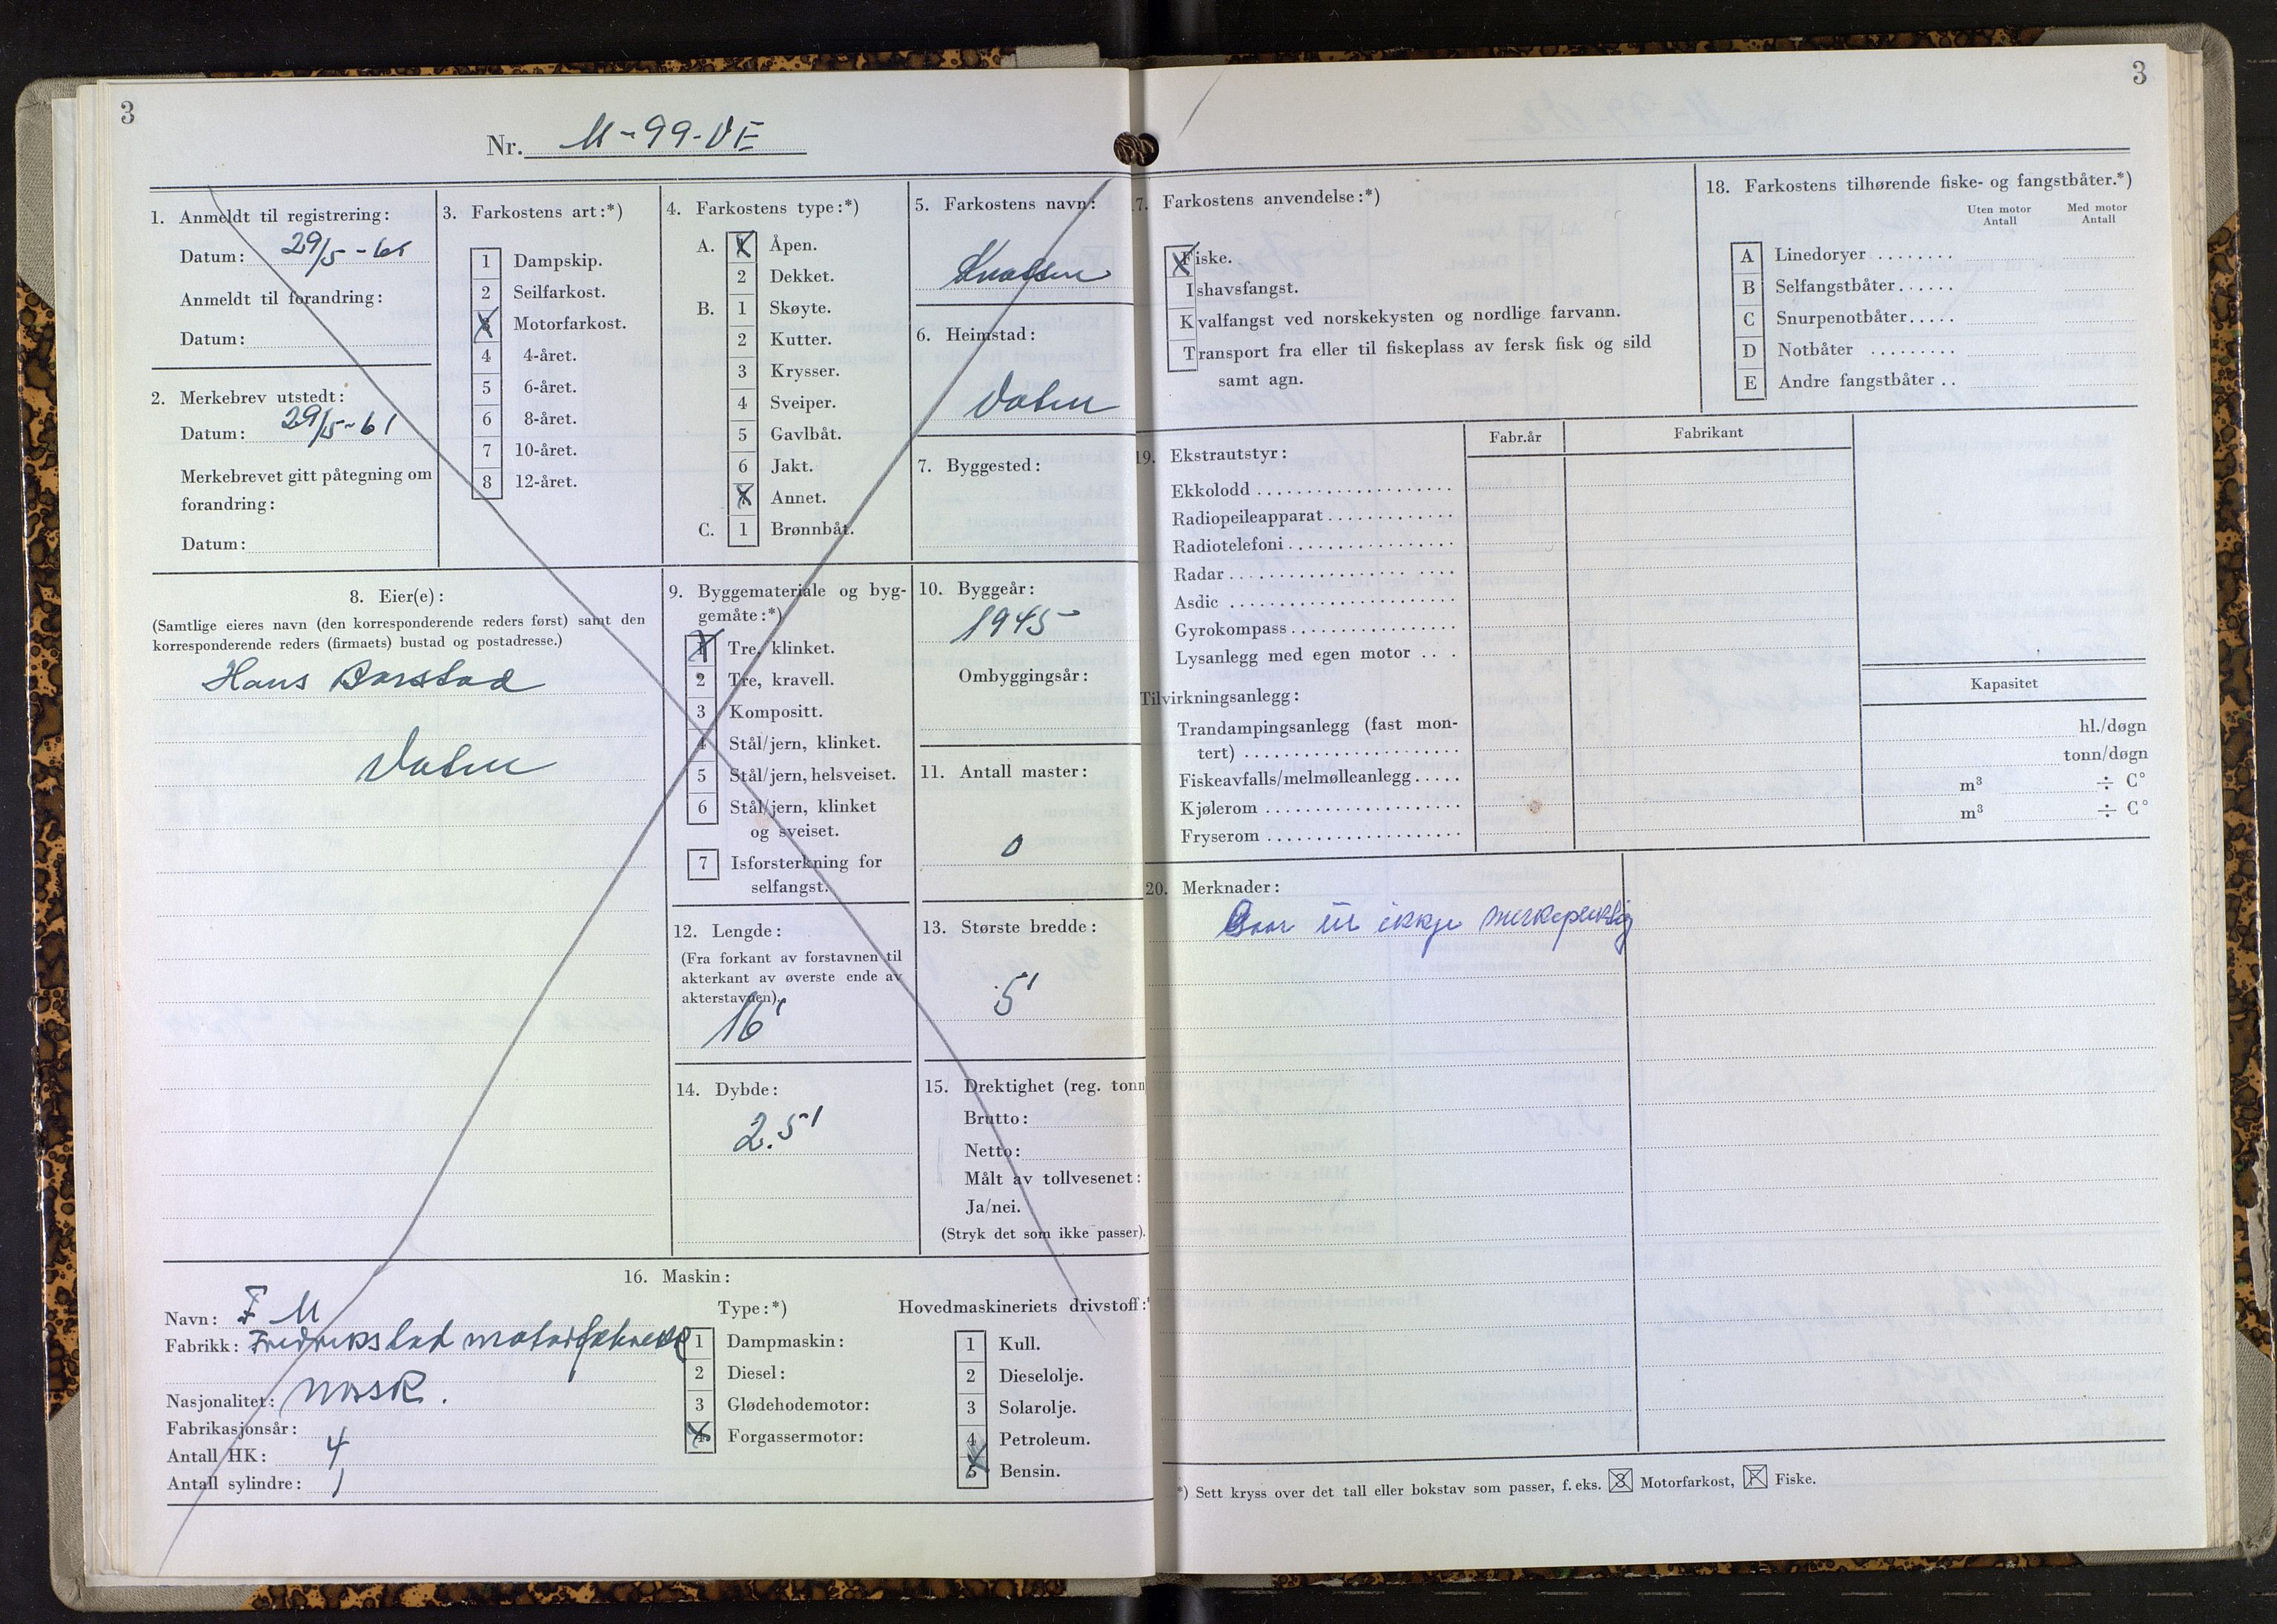 3
Nr. M-99-VE
1. Anmeldt til registrering:
Datum: 29/5-61
Anmeldt til forandring:
Datum:
2. Merkebrev utstedt:
Datum: 29/5-61
Merkebrevet gitt påtegning om
forandring:
Datum:
3. Farkostens art:*)
1 Dampskip.
2 Seilfarkost.
3 Motorfarkost.
4 4-året.
5 6-året.
6 8-året.
7 10-året.
8 12-året.
4. Farkostens type:*)
A. 1 Åpen.
2 Dekket.
B. 1 Skøyte.
2 Kutter.
3 Krysser.
4 Sveiper.
5 Gavlbåt.
6 Jakt.
7 Annet.
C. 1 Brønnbåt.
5. Farkostens navn:
6. Heimstad:
Vatne
7. Byggested:
8. Eier(e):
(Samtlige eieres navn (den korresponderende reders først) samt den
korresponderende reders (firmaets) bustad og postadresse.)
Hans Barstad
Vatne
9. Byggemateriale og byg-
gemåte:*)
1 Tre, klinket.
2 Tre, kravell.
3 Kompositt.
4 Stål/jern, klinket.
5 Stål/jern, helsveiset.
6 Stål/jern, klinket
og sveiset.
7 Isforsterkning for
selfangst.
10. Byggeår:
1945
Ombyggingsår:
11. Antall master:
0
12. Lengde:
(Fra forkant av forstavnen til
akterkant av øverste ende av
akterstavnen).
16'
13. Største bredde:
5'
14. Dybde:
2.5'
15. Drektighet (reg. tonn
Brutto:
Netto:
Målt av tollvesenet:
Ja/nei.
(Stryk det som ikke passer).
16. Maskin:
Navn: F M
Fabrikk: Fredrikstad motorfabrikk
Nasjonalitet: norsk.
Fabrikasjonsår:
Antall HK: 4
Antall sylindre: 1
Type:*)
1 Dampmaskin:
2 Diesel:
3 Glødehodemotor:
4 Forgassermotor:
Hovedmaskineriets drivstoff:*
1 Kull.
2 Dieselolje.
3 Solarolje.
4 Petroleum.
5 Bensin.
3
7. Farkostens anvendelse:*)
Fiske.
Ishavsfangst.
Kvalfangst ved norskekysten og nordlige farvann.
Transport fra eller til fiskeplass av fersk fisk og sild
samt agn.
18. Farkostens tilhørende fiske- og fangstbåter.*)
Uten motor Med motor
Antall Antall
A Linedoryer ........
B Selfangstbåter......
C Snurpenotbåter.....
D Notbåter .........
E Andre fangstbåter ..
Fabr.år Fabrikant
19. Ekstrautstyr:
Ekkolodd ....................
Radiopeileapparat .............
Radiotelefoni .................
Radar ....................
Asdic .......................
Gyrokompass .................
Lysanlegg med egen motor ...
Tilvirkningsanlegg:
Trandampingsanlegg (fast mon-
tert) ......................
Fiskeavfalls/melmølleanlegg .....
Kjølerom ....................
Fryserom ....................
Kapasitet
hl./døgn
tonn/døgn
m³ ÷ C°
m³ ÷ C°
20. Merknader:
ikkje merkepliktig
*) Sett kryss over det tall eller bokstav som passer, f. eks. 3 Motorfarkost, F Fiske.